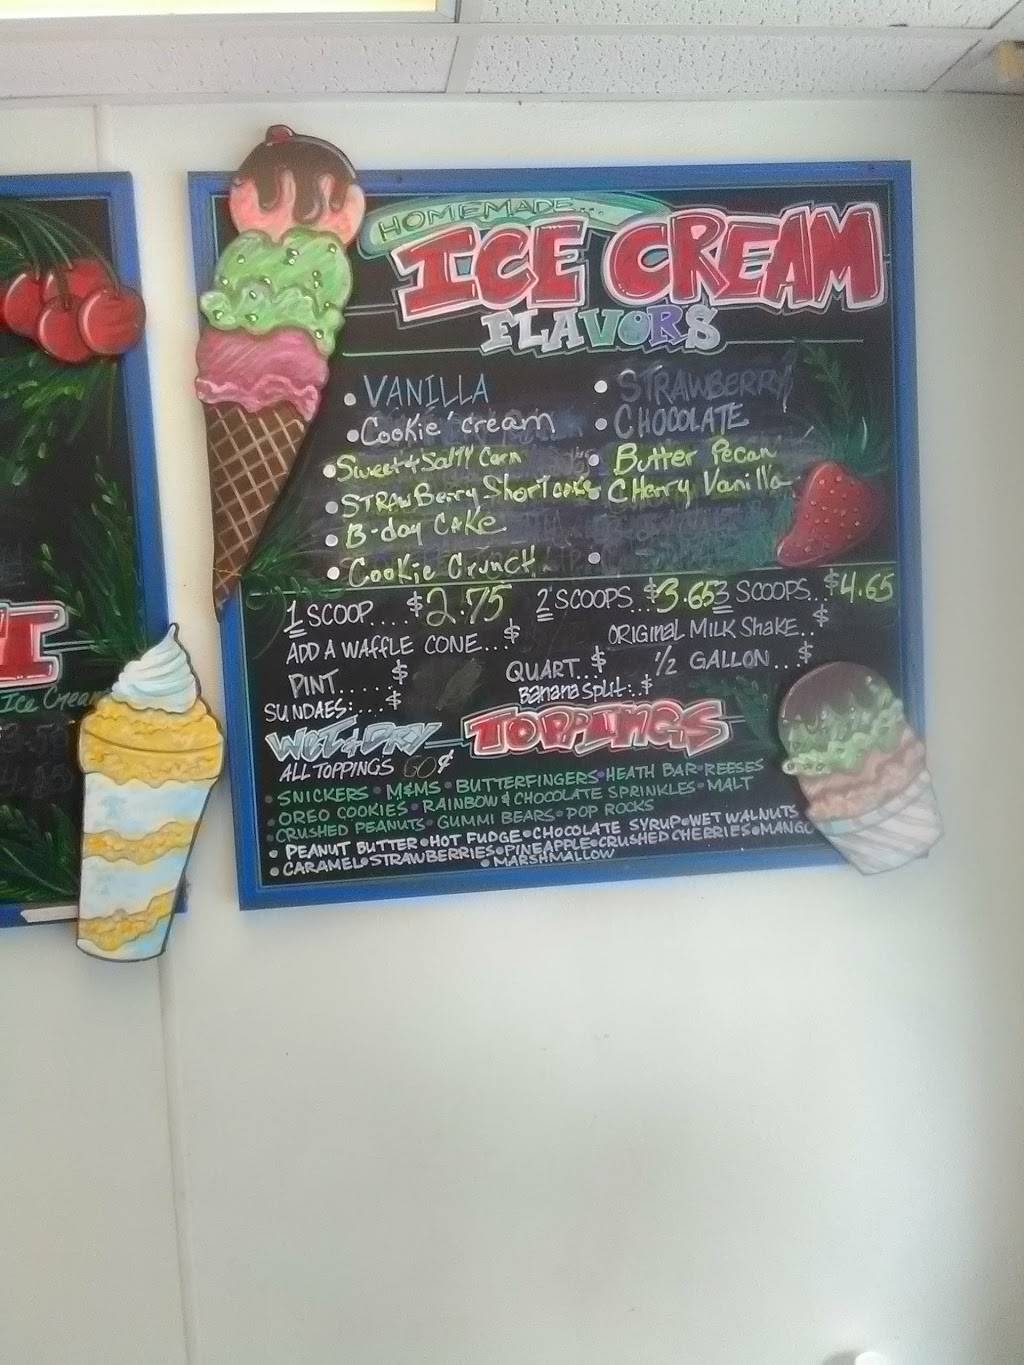 HOMEMADE...
ICE CREAM
FLAVORS
• VANILLA
• STRAWBERRY
• Cookie'cream
• CHOCOLATE
• Sweet & Salty Corn
• Butter Pecan
• STRAWBerry Shortcake
• CHerry Vanilla
• B-day CaKe
• Cookie Crunch
1 SCOOP.... $2.75
2 SCOOPS... $3.65
3 SCOOPS... $4.65
ADD A WAFFLE CONE... $
ORIGINAL MILK SHAKE.. $
PINT...... $
QUART.. $
1/2 GALLON... $
SUNDAES:.... $
Banana Split:.. $
WET & DRY TOPPINGS
ALL TOPPINGS 60¢
• SNICKERS • M&MS • BUTTERFINGERS • HEATH BAR • REESES
• OREO COOKIES • RAINBOW & CHOCOLATE SPRINKLES • MALT
• CRUSHED PEANUTS • GUMMI BEARS • POP ROCKS
• PEANUT BUTTER • HOT FUDGE • CHOCOLATE SYRUP • WET WALNUTS
• CARAMEL • STRAWBERRIES • PINEAPPLE • CRUSHED CHERRIES • MANGO
• MARSHMALLOW
Ice Cream